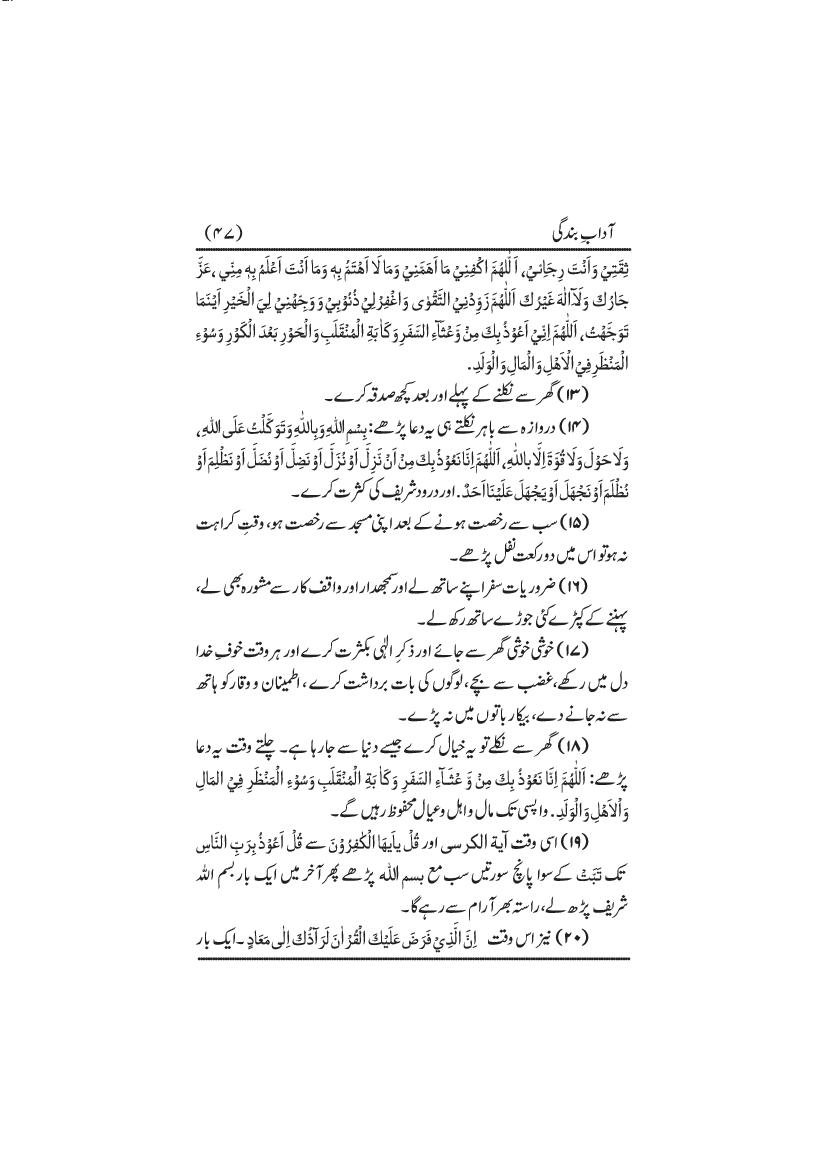 آدابِ بندگی (۴۷)
ثِقَتِيْ وَاَنْتَ رِجَائِيْ، اَللّٰهُمَّ اكْفِنِيْ مَا اَهَمَّنِيْ وَمَا لَا اَهْتَمُّ بِهٖ وَمَا اَنْتَ اَعْلَمُ بِهٖ مِنِّي ،عَزَّ
جَارُكَ وَلَآاِلٰهَ غَيْرُكَ اَللّٰهُمَّ زَوِّدْنِيْ التَّقْوٰى وَاغْفِرْلِيْ ذُنُوْبِيْ وَوَجِّهْنِيْ لِيَ الْخَيْرِ اَيْنَمَا
تَوَجَّهْتُ، اَللّٰهُمَّ اِنِّيْ اَعُوْذُ بِكَ مِنْ وَّعْثَآءِ السَّفَرِ وَكَابَةِ الْمُنْقَلَبِ وَالْحَوْرِ بَعْدَ الْكَوْرِ وَسُوْءِ
الْمَنْظَرِ فِيْ الْاَهْلِ وَالْمَالِ وَالْوَلَدِ.
(۱۳) گھر سے نکلنے کے پہلے اور بعد کچھ صدقہ کرے۔
(۱۴) دروازہ سے باہر نکلتے ہی یہ دعا پڑھے: بِسْمِ اللّٰهِ وَبِاللّٰهِ وَتَوَكَّلْتُ عَلَى اللّٰهِ،
وَلَا حَوْلَ وَلَا قُوَّةَ اِلَّا بِاللّٰهِ، اَللّٰهُمَّ اِنَّا نَعُوْذُ بِكَ مِنْ اَنْ نَزِلَّ اَوْ نُزَلَّ اَوْ نَضِلَّ اَوْ نُضَلَّ اَوْ نَظْلِمَ اَوْ
نُظْلَمَ اَوْ نَجْهَلَ اَوْ يَجْهَلَ عَلَيْنَا اَحَدٌ. اور درود شریف کی کثرت کرے۔
(۱۵) سب سے رخصت ہونے کے بعد اپنی مسجد سے رخصت ہو، وقتِ کراہت
نہ ہو تو اس میں دو رکعت نفل پڑھے۔
(۱۶) ضروریات سفر اپنے ساتھ لے اور سمجھدار اور واقف کار سے مشورہ بھی لے،
پہننے کے کپڑے کئی جوڑے ساتھ رکھ لے۔
(۱۷) خوشی خوشی گھر سے جائے اور ذکرِ الٰہی بکثرت کرے اور ہر وقت خوفِ خدا
دل میں رکھے، غضب سے بچے، لوگوں کی بات برداشت کرے، اطمینان و وقار کو ہاتھ
سے نہ جانے دے، بیکار باتوں میں نہ پڑے۔
(۱۸) گھر سے نکلے تو یہ خیال کرے جیسے دنیا سے جا رہا ہے۔ چلتے وقت یہ دعا
پڑھے: اَللّٰهُمَّ اِنَّا نَعُوْذُ بِكَ مِنْ وَّعْثَآءِ السَّفَرِ وَكَابَةِ الْمُنْقَلَبِ وَسُوْءِ الْمَنْظَرِ فِيْ المَالِ
وَالْاَهْلِ وَالْوَلَدِ. واپسی تک مال و اہل و عیال محفوظ رہیں گے۔
(۱۹) اسی وقت آیة الکرسی اور قُلْ یٰاَیُّهَا الْکٰفِرُوْنَ سے قُلْ اَعُوْذُ بِرَبِّ النَّاسِ
تک تَبَّتْ کے سوا پانچ سورتیں سب مع بسم الله پڑھے پھر آخر میں ایک بار بسم اللہ
شریف پڑھ لے، راستہ بھر آرام سے رہے گا۔
(۲۰) نیز اس وقت اِنَّ الَّذِيْ فَرَضَ عَلَيْكَ الْقُرْاٰنَ لَرَآدُّكَ اِلٰى مَعَادٍ ۔ ایک بار